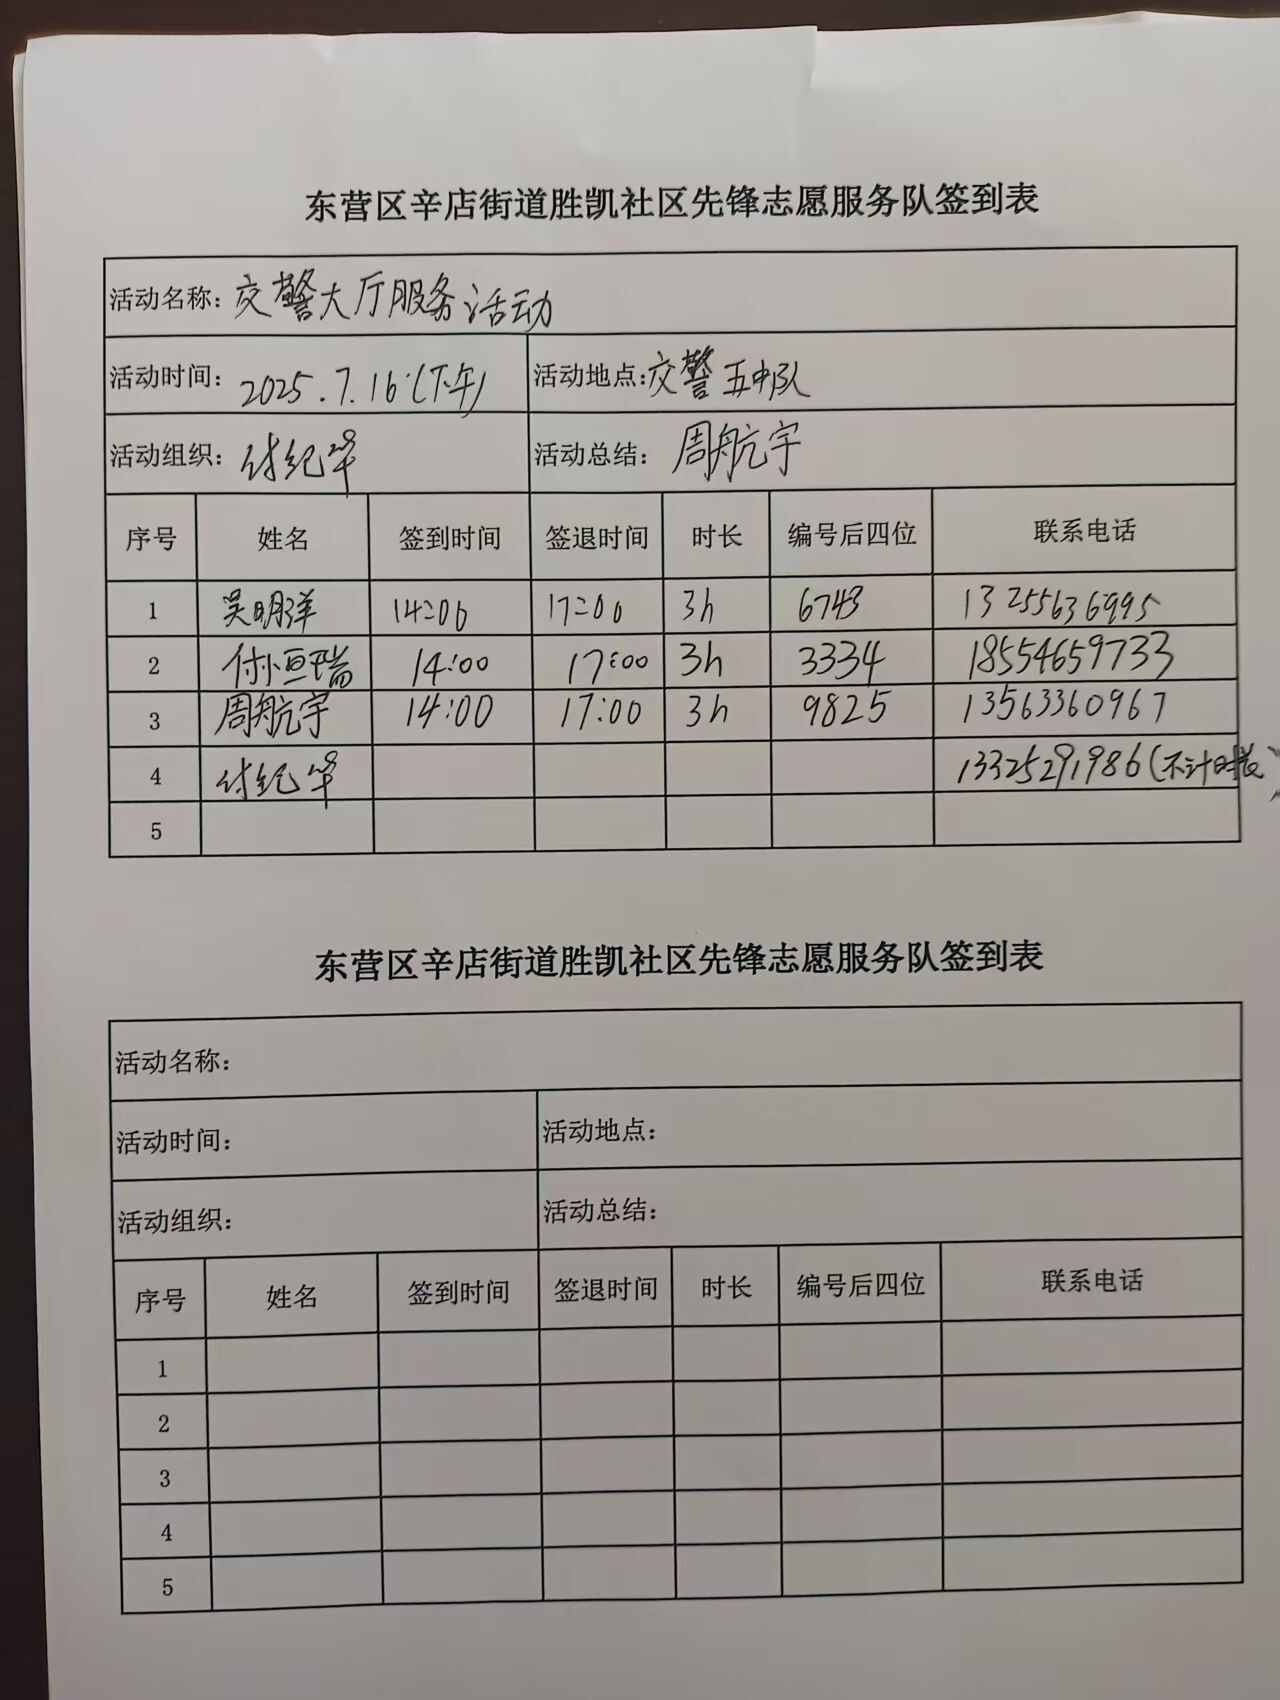 东营区辛店街道胜凯社区先锋志愿服务队签到表
活动名称：交警大厅服务活动
活动时间：2025.7.16（下午） 活动地点：交警五中队
活动组织：付纪华 活动总结：周航宇
序号 姓名 签到时间 签退时间 时长 编号后四位 联系电话
1 吴明洋 14:00 17:00 3h 6743 13255636995
2 付小恒瑞 14:00 17:00 3h 3334 18554659733
3 周航宇 14:00 17:00 3h 9825 13563360967
4 付纪华 13325291986（不计时长）
5
东营区辛店街道胜凯社区先锋志愿服务队签到表
活动名称：
活动时间： 活动地点：
活动组织： 活动总结：
序号 姓名 签到时间 签退时间 时长 编号后四位 联系电话
1
2
3
4
5